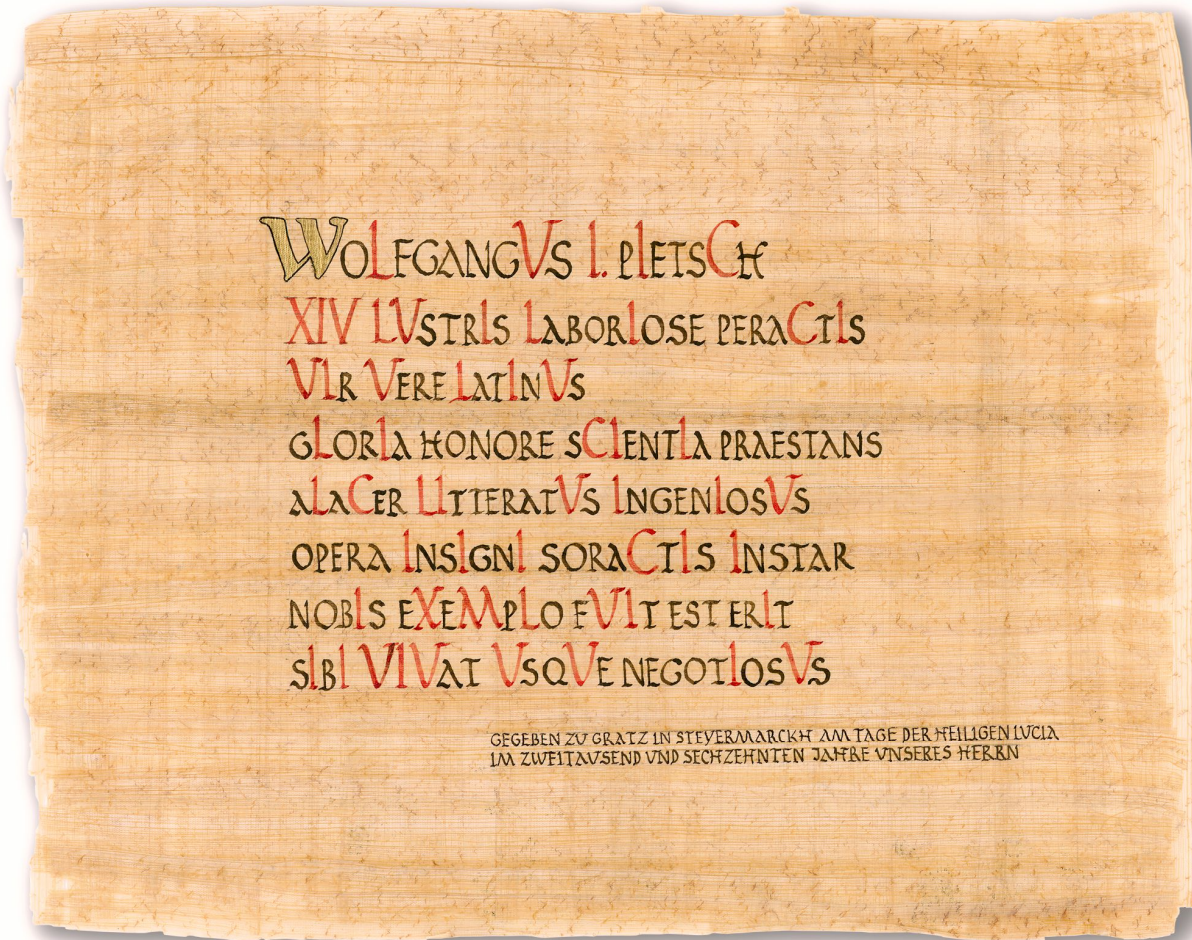 WOLFGANGVS I. PIETSCH
XIV LVSTRIS LABORIOSE PERACTIS
VIR VERE LATINVS
GLORIA HONORE SCIENTIA PRAESTANS
ALACER LITTERATVS INGENIOSVS
OPERA INSIGNI SORACTIS INSTAR
NOBIS EXEMPLO FVIT EST ERIT
SIBI VIVAT VSQVE NEGOTIOSVS
GEGEBEN ZV GRATZ IN STEYERMARCKH AM TAGE DER HEILIGEN LVCIA
IM ZWEITAVSEND VND SECHZEHNTEN JAHRE VNSERES HERRN